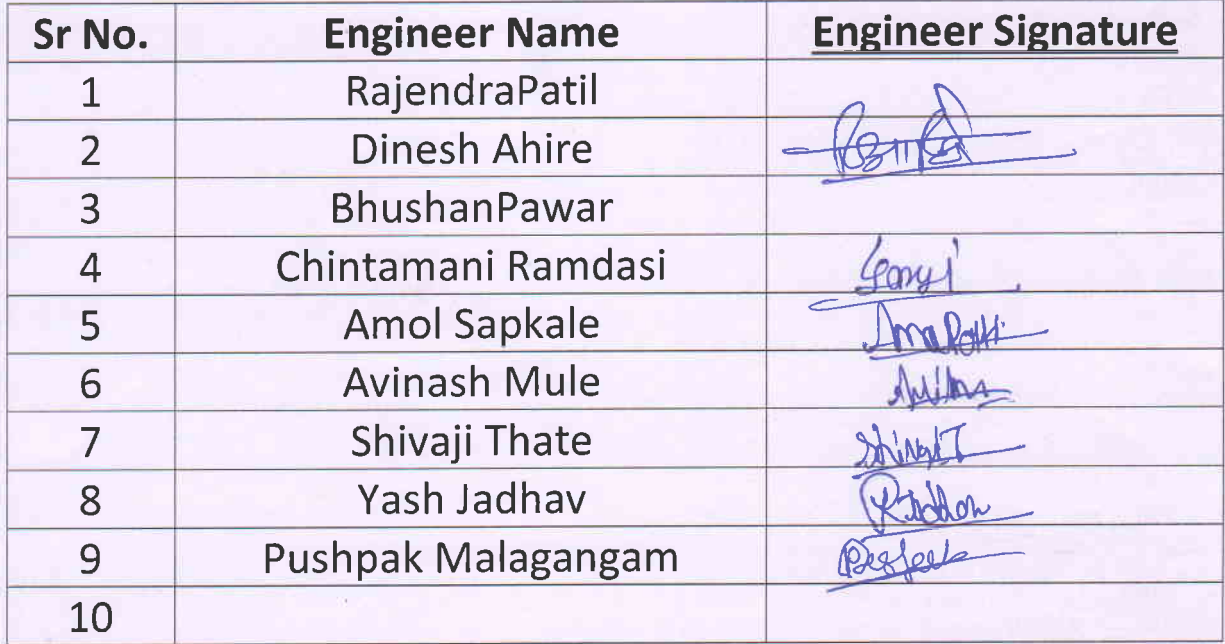 Sr No. Engineer Name Engineer Signature
1 RajendraPatil
2 Dinesh Ahire
3 BhushanPawar
4 Chintamani Ramdasi
5 Amol Sapkale
6 Avinash Mule
7 Shivaji Thate
8 Yash Jadhav
9 Pushpak Malagangam
10